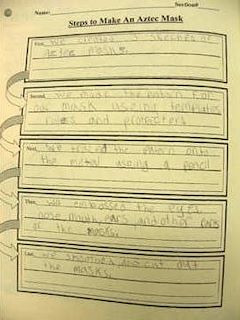 Name: Section#
Steps to Make An Aztec Mask
First, we made 3 sketches of
aztec masks.
Second, We made the patern for
our mask useing templates
rulers and protracters
Next, we traced the patern onto
the metal using a pencil
Then, we embossed the eyes
nose, mouth, ears, and other
of the masks.
Last, we out
the masks.